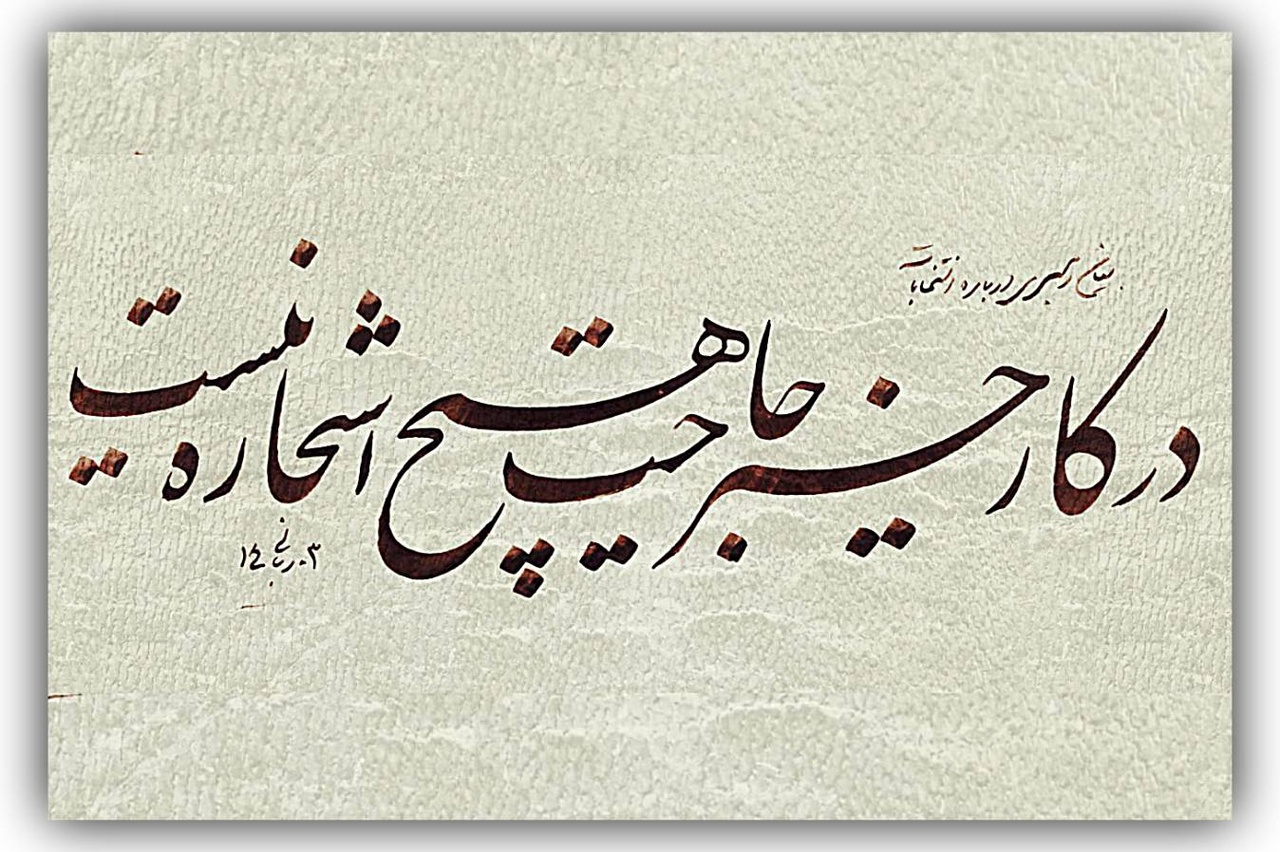 سخنان رهبری درباره انتخابات
در کار خیر حاجت هیچ استخاره نیست